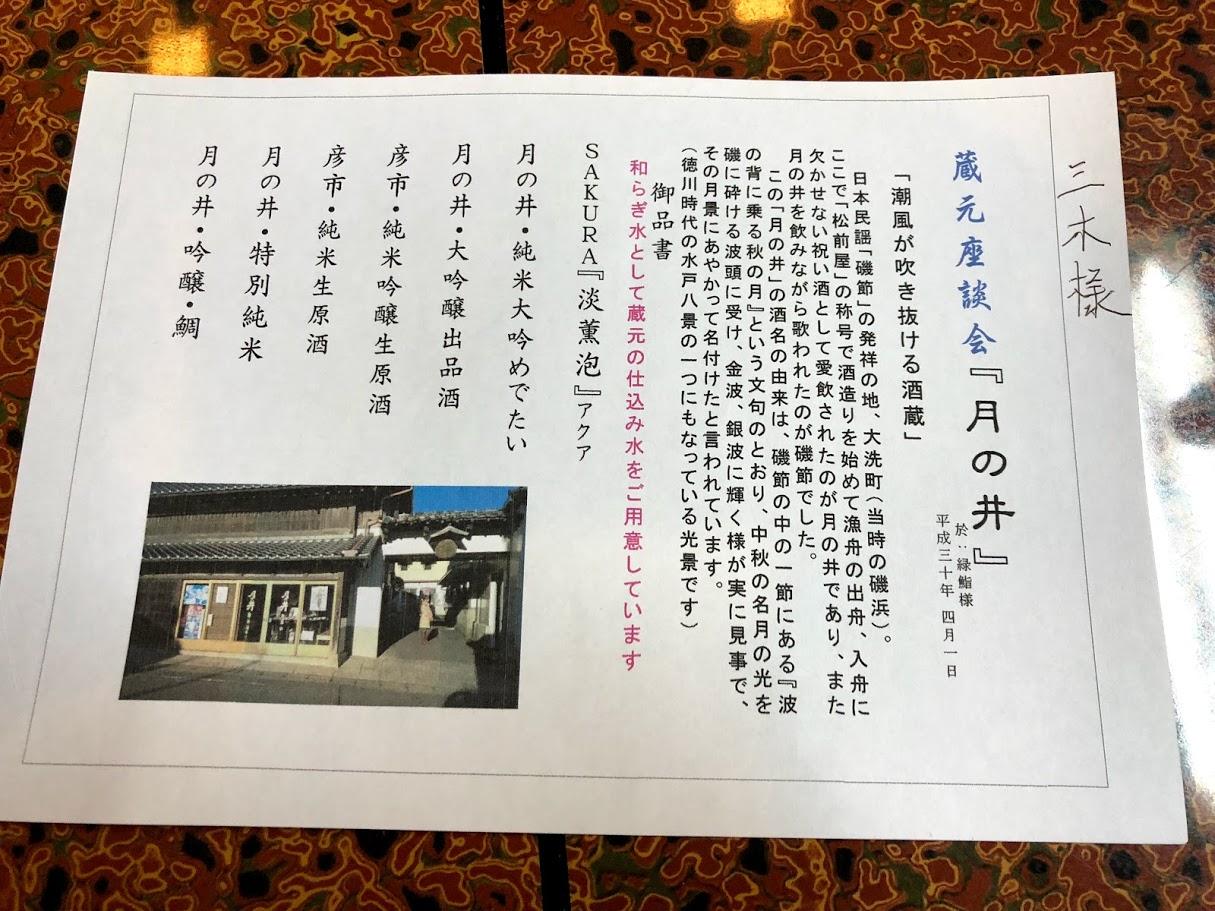 三木様
蔵元座談会『月の井』
於:緑鮨様
平成三十年 四月一日
「潮風が吹き抜ける酒蔵」
日本民謡「磯節」の発祥の地、大洗町(当時の磯浜)。
ここで「松前屋」の称号で酒造りを始めて漁舟の出舟、入舟に
欠かせない祝い酒として愛飲されたのが月の井であり、また
月の井を飲みながら歌われたのが磯節でした。
この「月の井」の酒名の由来は、磯節の中の一節にある『波
の背に乗る秋の月』という文句のとおり、中秋の名月の光を
磯に砕ける波頭に受け、金波、銀波に輝く様が実に見事で、
その月景にあやかって名付けたと言われています。
(徳川時代の水戸八景の一つにもなっている光景です)
御品書
和らぎ水として蔵元の仕込み水をご用意しています
SAKURA『淡薫泡』アクア
月の井・純米大吟めでたい
月の井・大吟醸出品酒
彦市・純米吟醸生原酒
彦市・純米生原酒
月の井・特別純米
月の井・吟醸・鯛